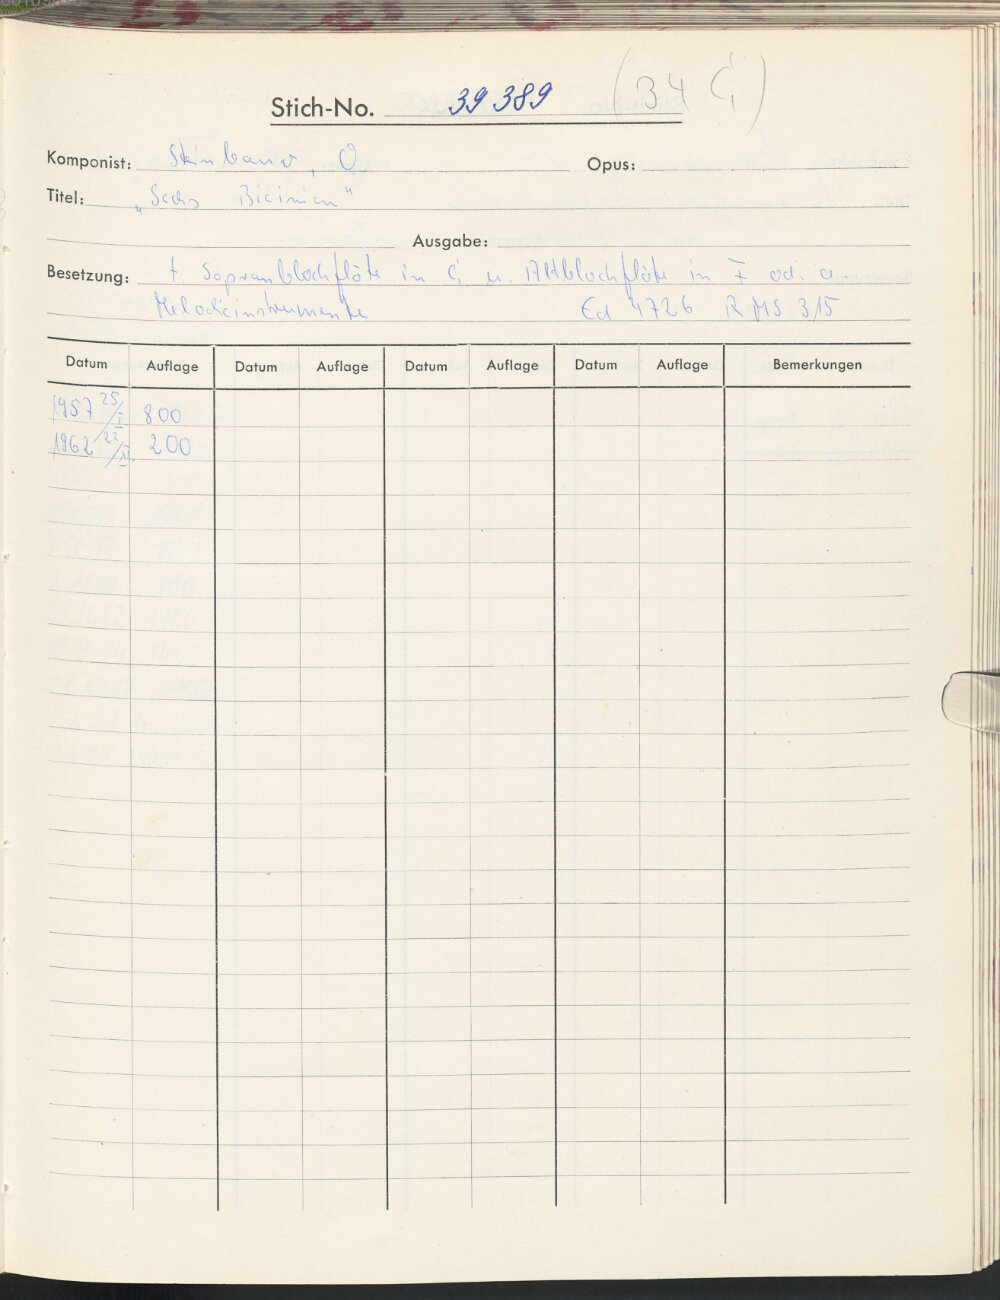 Stich-No. 39389 (34 G)
Komponist: Steinbauer, O Opus:
Titel: „Sechs Bicinien"
Ausgabe:
Besetzung: f. Sopranblockflöte in C u. Altblockflöte in F od. a
Melodieinstrumente Ed 4726 RMS 315
Datum Auflage Datum Auflage Datum Auflage Datum Auflage Bemerkungen
1957 25/I 800
1962 22/ 200